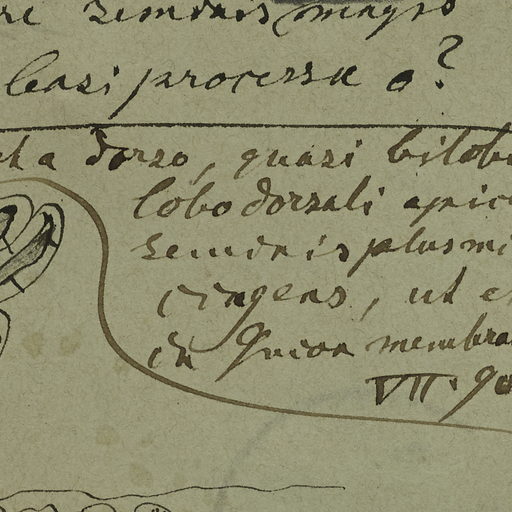 seminis magis
basi processu o?
dorso, quasi bilob
lobo dorsali apic
seminis plus mi
cingens, ut e
in membra
VII.